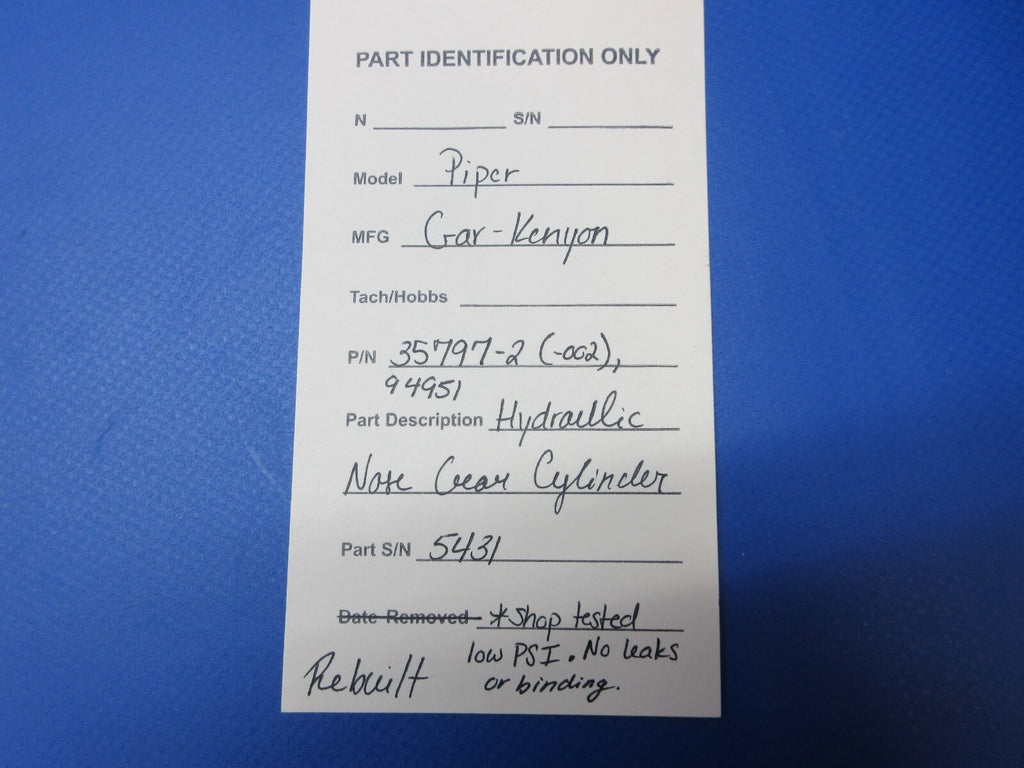 PART IDENTIFICATION ONLY
N S/N
Model Piper
MFG Gar-Kenyon
Tach/Hobbs
P/N 35797-2 (-002),
94951
Part Description Hydraulic
Nose Gear Cylinder
Part S/N 5431
Date Removed *Shop tested
low PSI. No leaks
Rebuilt or binding.